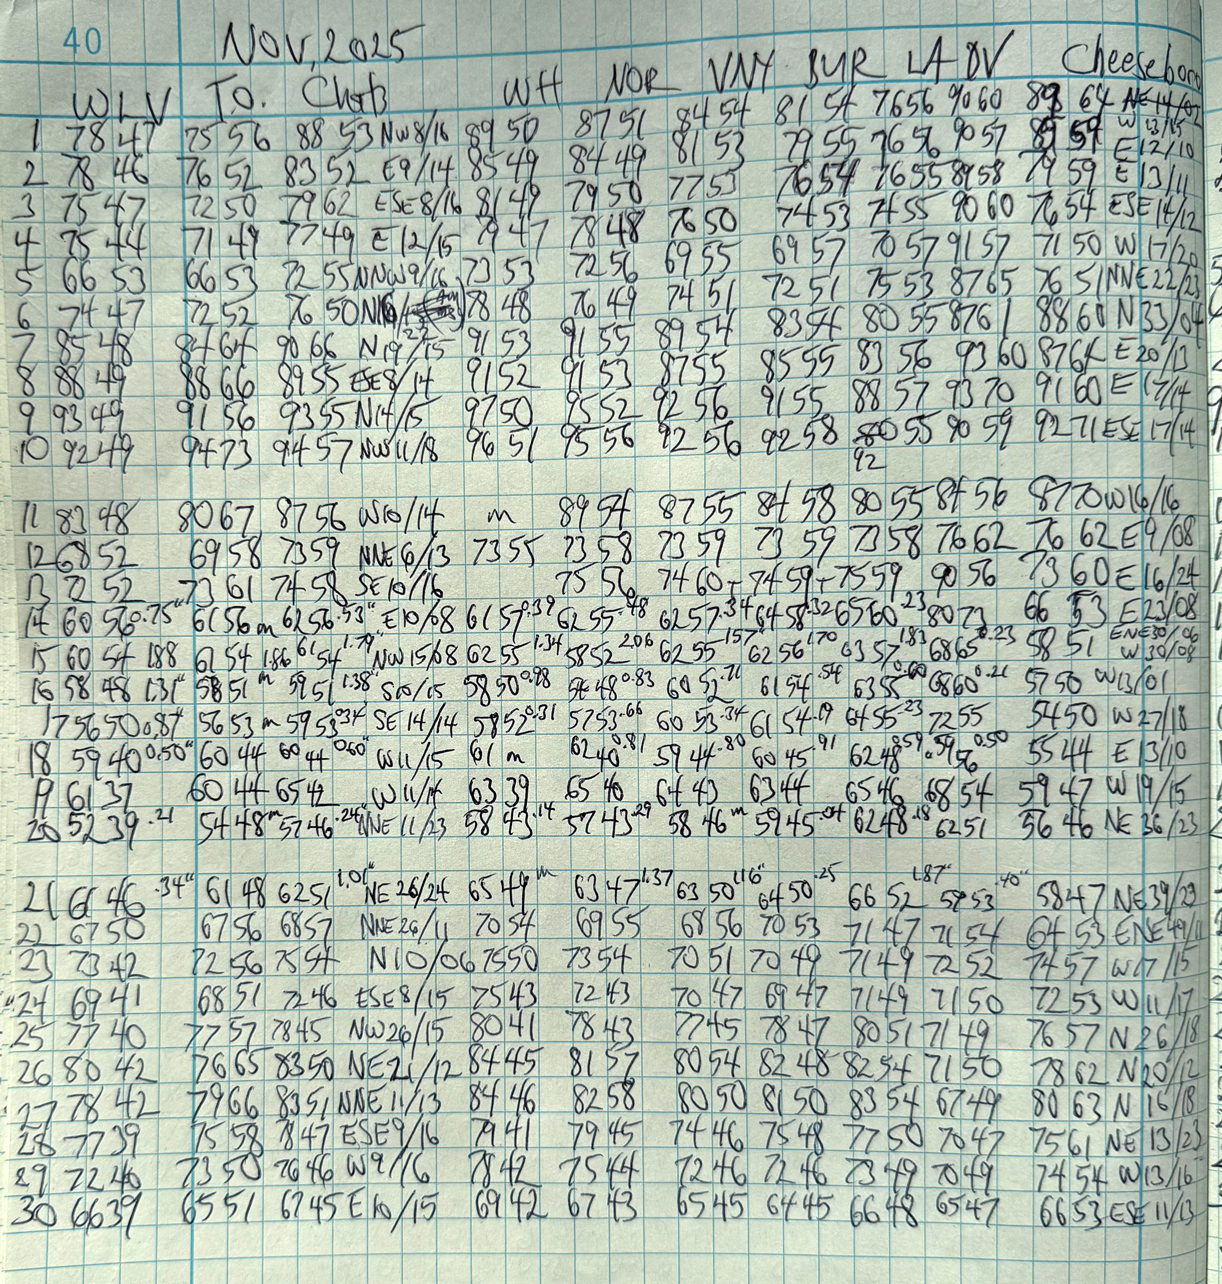 40 NOV, 2025
WLV T.O. Chats WH NOR VNY BUR LA DV Cheeseboro
1 78 47 75 56 88 53 NW 8/16 89 50 87 51 84 54 81 54 76 56 90 60 89 64 NE 14/07
2 78 46 76 52 83 52 E9/14 85 49 84 49 81 53 79 55 76 56 90 57 89 59 W 13/15 E 12/10
3 75 47 72 50 79 62 ESE 8/16 81 49 79 50 77 53 76 54 76 55 89 58 79 59 E 13/11
4 75 44 71 49 77 49 E 12/15 79 47 78 48 76 50 74 53 74 55 90 60 76 54 ESE 14/12
5 66 53 66 53 72 55 NNW 9/16 73 53 72 56 69 55 69 57 70 57 91 57 71 50 W 17/20
6 74 47 72 52 76 50 N16/ 78 48 76 49 74 51 72 51 75 53 87 65 76 51 NNE 22/23
7 85 48 84 64 90 66 N 19/15 91 53 91 55 89 54 83 54 80 55 87 61 88 60 N 33/04
8 88 49 88 66 89 55 ESE 8/14 91 52 91 53 87 55 85 55 83 56 93 60 87 64 E 20/13
9 93 49 91 56 93 55 N14/15 97 50 95 52 92 56 91 55 88 57 93 70 91 60 E 17/14
10 92 49 94 73 94 57 NW 11/18 96 51 95 56 92 56 92 58 80 55 90 59 92 71 ESE 17/14
92
11 83 48 80 67 87 56 W10/14 m 89 54 87 55 84 58 80 55 84 56 87 70 W16/16
12 68 52 69 58 73 59 NNE 6/13 73 55 73 58 73 59 73 59 73 58 76 62 76 62 E9/08
13 72 52 73 61 74 58 SE 10/16 75 56 74 60 - 74 59 - 75 59 90 56 73 60 E 16/24
14 60 56 0.75" 61 56 m 62 56 .53" E10/08 61 57 0.39 62 55 .48 62 57 .34 64 58 .32 65 60 .23 80 73 66 53 E23/08
15 60 54 1.88 61 54 1.86 61 54 1.79" NW 15/08 62 55 1.34 58 52 2.06 62 55 1.57" 62 56 1.70 63 57 1.83 68 65 0.23 58 51 ENE 30/06 W 30/08
16 58 48 1.31" 58 51 m 59 51 1.38" S10/15 58 50 0.98 56 48 0.83 60 52 .71 61 54 .54 63 55 0.60 68 60 0.21 57 50 W13/01
17 56 50 0.87" 56 53 m 59 53 0.34 SE 14/14 58 52 0.31 57 53 .66 60 53 .34 61 54 .19 64 55 .23 72 55 54 50 W 27/18
18 59 40 0.50" 60 44 60 44 0.60" W11/15 61 m 62 40 0.81 59 44 .80 60 45 .91 62 48 .59 59 56 0.50 55 44 E 13/10
19 61 37 60 44 65 42 W 11/14 63 39 65 40 64 43 63 44 65 46 68 54 59 47 W 19/15
20 52 39 .21 54 48 m 57 46 .24" NNE 11/23 58 43 .14 57 43 .29 58 46 m 59 45 .04 62 48 .18 62 51 56 46 NE 36/23
21 61 46 .34" 61 48 62 51 1.01" NE 26/24 65 49 m 63 47 1.37 63 50 1.16" 64 50 .25 66 52 1.87" 59 53 .40" 58 47 NE 39/29
22 67 50 67 56 68 57 NNE 26/11 70 54 69 55 68 56 70 53 71 47 71 54 64 53 ENE 49/11
23 73 42 72 56 75 54 N10/06 75 50 73 54 70 51 70 49 71 49 72 52 74 57 W17/15
24 69 41 68 51 72 46 ESE 8/15 75 43 72 43 70 47 69 47 71 49 71 50 72 53 W 11/17
25 77 40 77 57 78 45 NW 26/15 80 41 78 43 77 45 78 47 80 51 71 49 76 57 N 26/18
26 80 42 76 65 83 50 NE 21/12 84 45 81 57 80 54 82 48 82 54 71 50 78 62 N 20/12
27 78 42 79 66 83 51 NNE 11/13 84 46 82 58 80 50 81 50 83 54 67 49 80 63 N 16/18
28 77 39 75 58 78 47 ESE 9/16 79 41 79 45 74 46 75 48 77 50 70 47 75 61 NE 13/23
29 72 40 73 50 76 46 W9/16 78 42 75 44 72 46 72 46 73 49 70 49 74 54 W13/16
30 66 39 65 51 67 45 E10/15 69 42 67 43 65 45 64 45 66 48 65 47 66 53 ESE 11/13